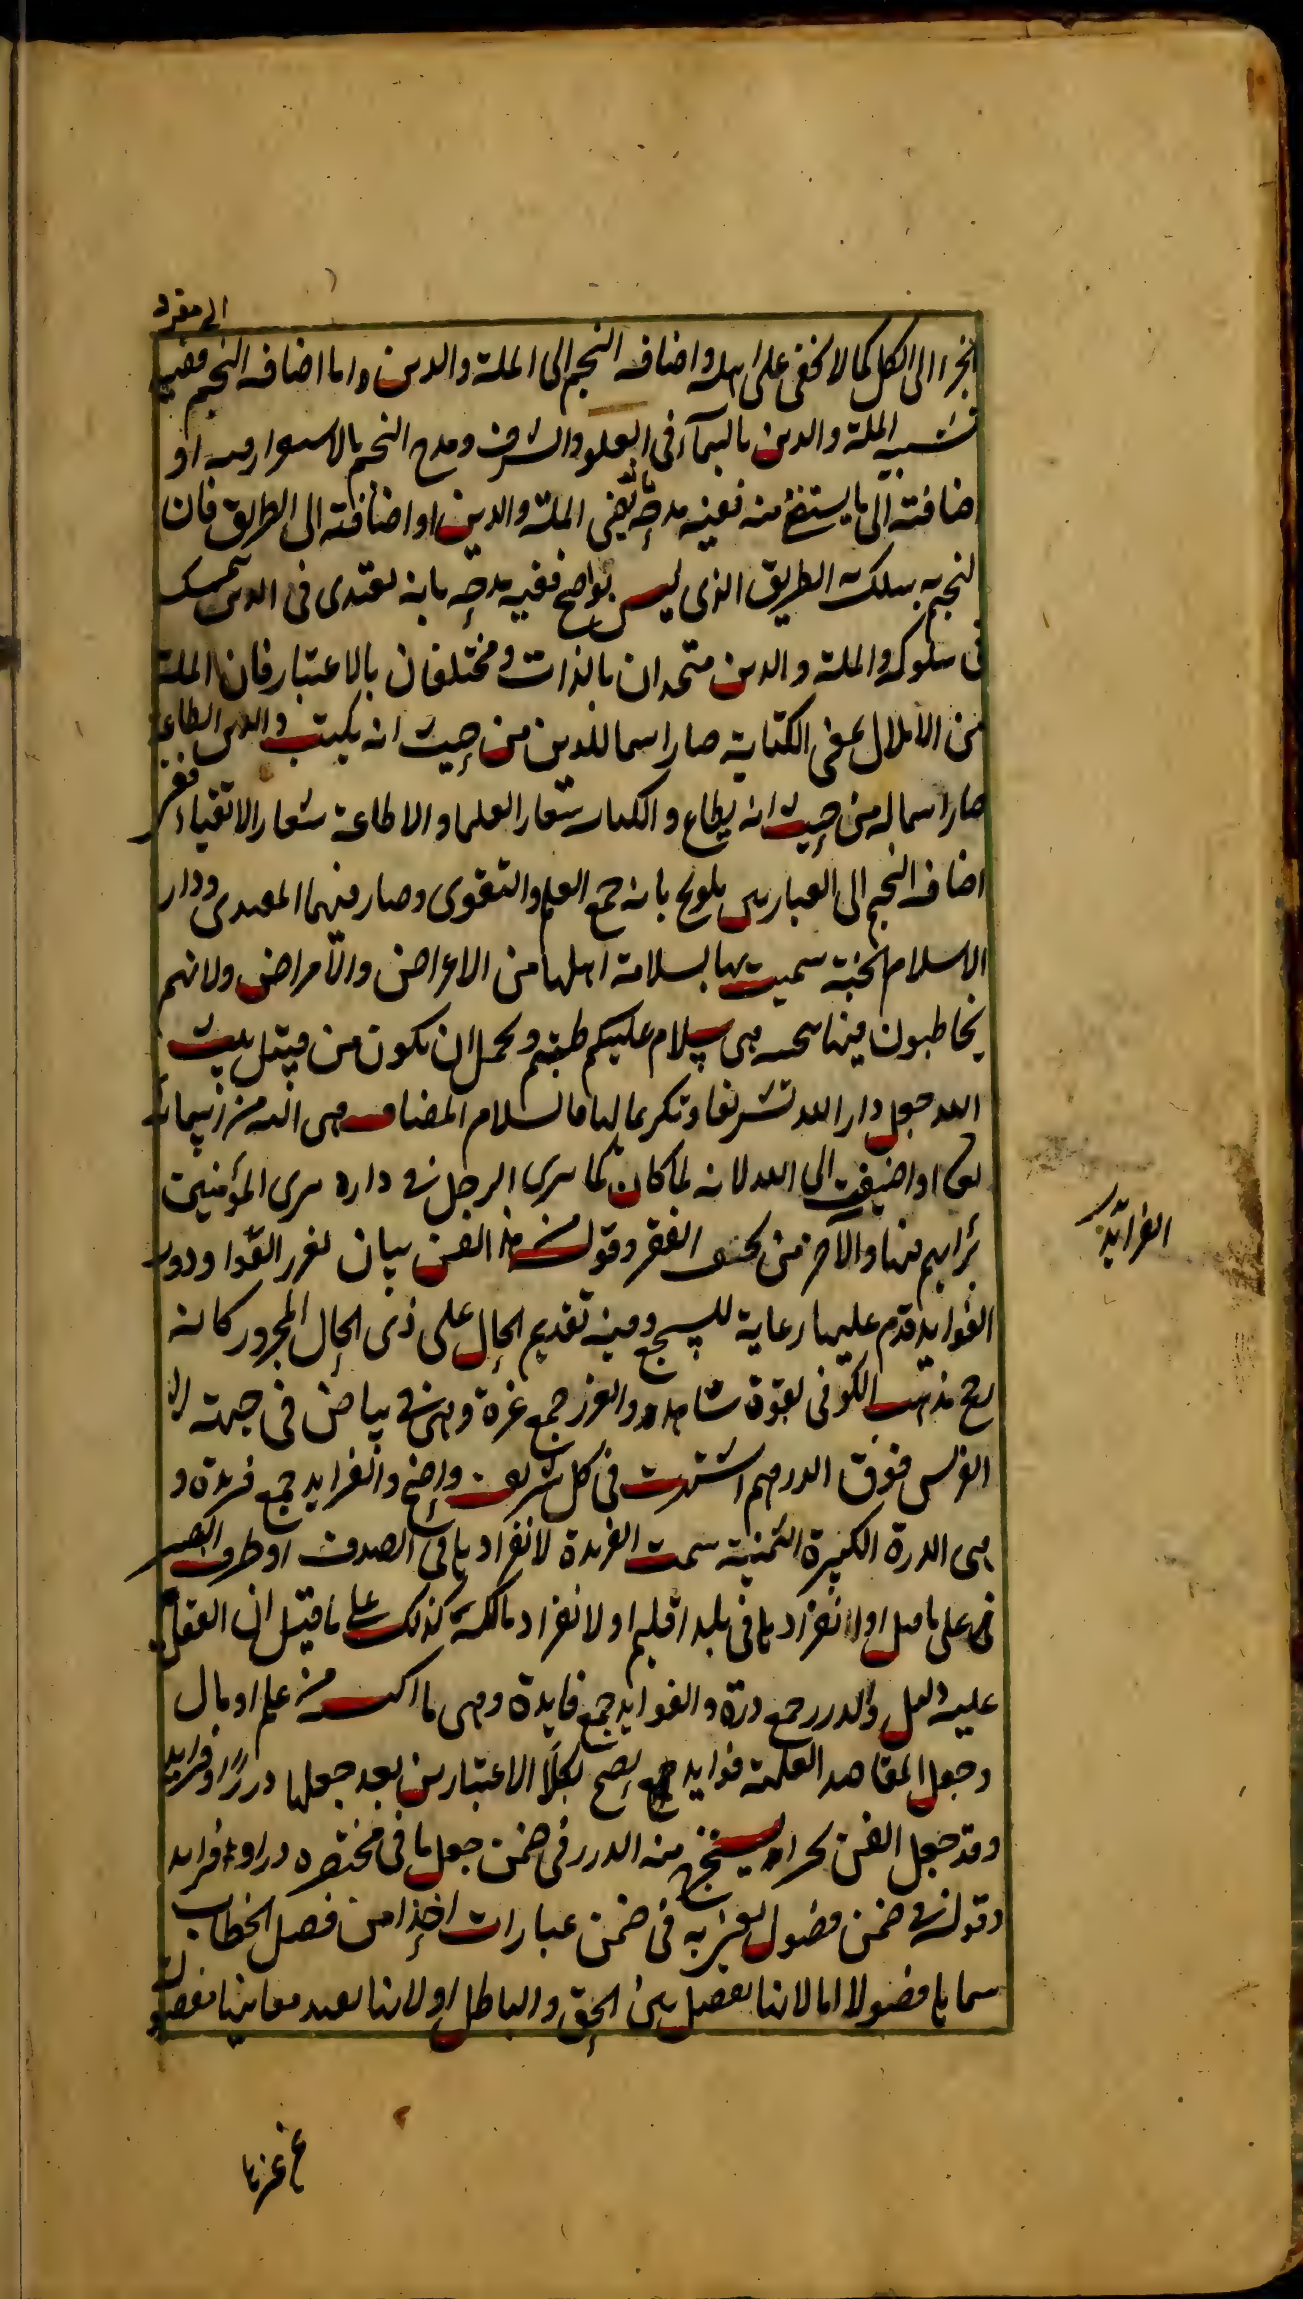 الى مفرد
الجزء الى الكل كما لا يخفى على اهله واضافه النجم الى الملة والدين واما اضافه النجم ففيه
تشبيه الملة والدين بالسمآء فى العلو والشرف ومدح النجم بالاستواء او
اضافته الى ما يستضئ منه ففيه مدحه بانه يضئ الملة والدين او اضافته الى الطريق فان
النجم به يسلك الطريق الذى ليس بواضح ففيه مدحه بانه يقتدى فى الدين
فى سلوكه والملة والدين متحدان بالذات ومختلفان بالاعتبار فان الملة
من الاملال بمعنى الكتابة صار اسما للدين من حيث انه يكتب والدين الطاعة
صار اسما له من حيث انه يطاع والكتاب شعار العلما والاطاعة شعار الاتقياء ففى
اضافه النجم الى العبارتين يلوح بانه جمع العلم والتقوى وصار فيهما المقتدى ودار
الاسلام الجنة سميت بها لسلامة اهلها من الاعراض والامراض ولانهم
يخاطبون فيها بتحية هى سلام عليكم طبتم ويحتمل ان تكون من قبيل بيت
الله جعل دار الله تشريفا وتكريما لها فالسلام المضاف هى اليه من اسمائه
تعالى او اضيفت الى الله لانه لما كان كما يرى الرجل فى داره يرى المؤمنين
فيها والآخر من بحسب الفقر وقوله من هذا الفن بيان لغرر الفوا ودرر
الفوايد قدم عليها رعاية للسجع وفيه تقديم الحال على ذى الحال المجرور كانه
رجح مذهب الكوفى لقوة شاهده والغرر جمع غرة وهى بياض فى جبهته
الفرس فوق الدرهم اشتهرت فى كل شريف واضح والفرايد جمع فريدة و
هى الدرة الكبيرة الثمينة سميت الفريدة لانفرادها فى الصدف او طرف البصر
على ما قيل او لانفرادها فى بلد اقليم او لانفراد مالكه كذلك على ما قيل ان العقل
عليه دليل والدرر جمع درة والفوايد جمع فايدة وهى ما اكتسب من علم او مال
وجعل المقاصد العلمية فوايد يصح بكلا الاعتبارين بعد جعلها دررا وفرايد
وقد جعل الفن بحرا يستخرج منه الدرر فى ضمن جعل ما فى مختصره دررا وفرايد
وقوله فى ضمن فصول يعبر به فى ضمن عبارات اخذا من فصل الخطاب
سماها فصولا اما لانها تفصل بين الحق والباطل او لانها تفيد معانيها مفصلة
الفرايد